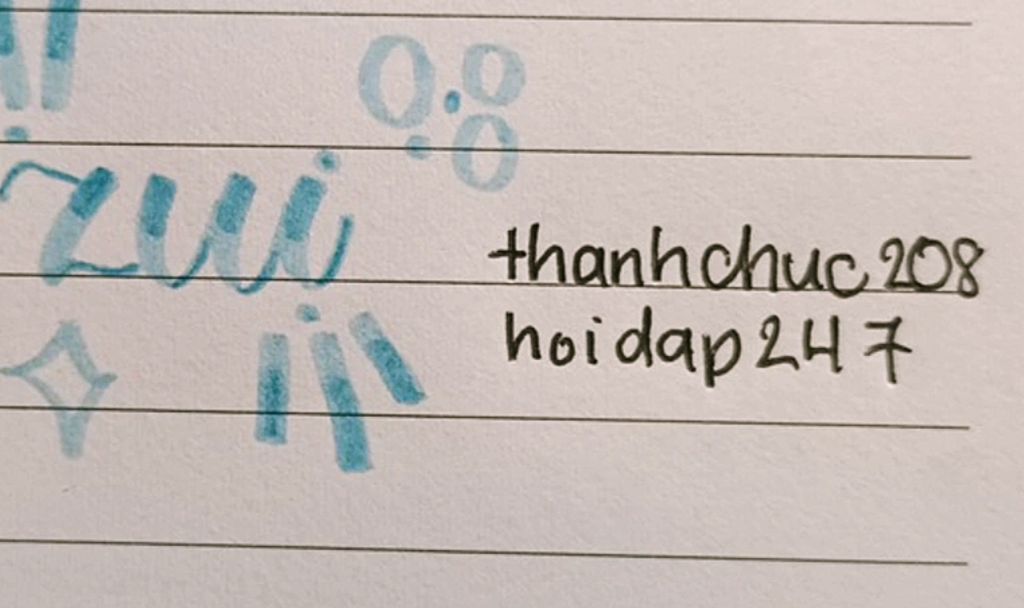 zui
thanhchuc208
hoidap247